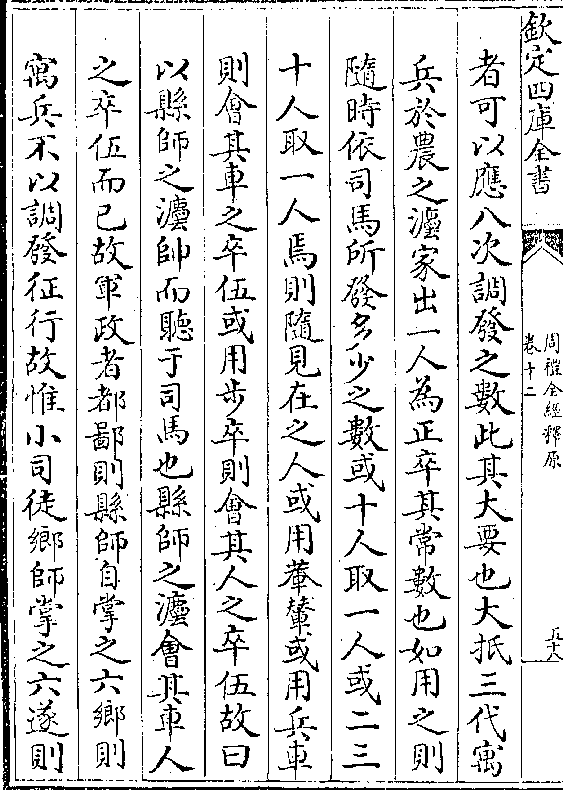 欽定四庫全書
周禮全經釋原
卷十二
五十八
者可以應八次調發之數此其大要也大抵三代寓
兵於農之灋家出一人為正卒其常數也如用之則
隨時依司馬所發多少之數或十人取一人或二三
十人取一人焉則隨見在之人或用輂輦或用兵車
則會其車之卒伍或用步卒則會其人之卒伍故曰
以縣師之灋帥而聽于司馬也縣師之灋會其車人
之卒伍而已故軍政者都鄙則縣師自掌之六鄉則
寓兵不以調發征行故惟小司徒鄉師掌之六遂則